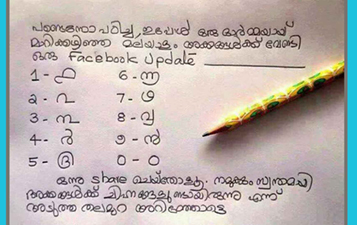 പണ്ടെന്നോ പഠിച്ച, ഇപ്പോൾ ഒരു ഓർമ്മയായി
മാറിക്കഴിഞ്ഞ മലയാളം അക്കങ്ങൾക്ക് വേണ്ടി
ഒരു Facebook Update
1 - ൧ 6 - ൬
2 - ൨ 7 - ൭
3 - ൩ 8 - ൮
4 - ൪ 9 - ൯
5 - ൫ 0 - ൦
ഒന്നു share ചെയ്തോളൂ. നമുക്കും സ്വന്തമായി
അക്കങ്ങൾക്ക് ചിഹ്നങ്ങളുണ്ടായിരുന്നു എന്ന്
അടുത്ത തലമുറ അറിഞ്ഞോട്ടെ